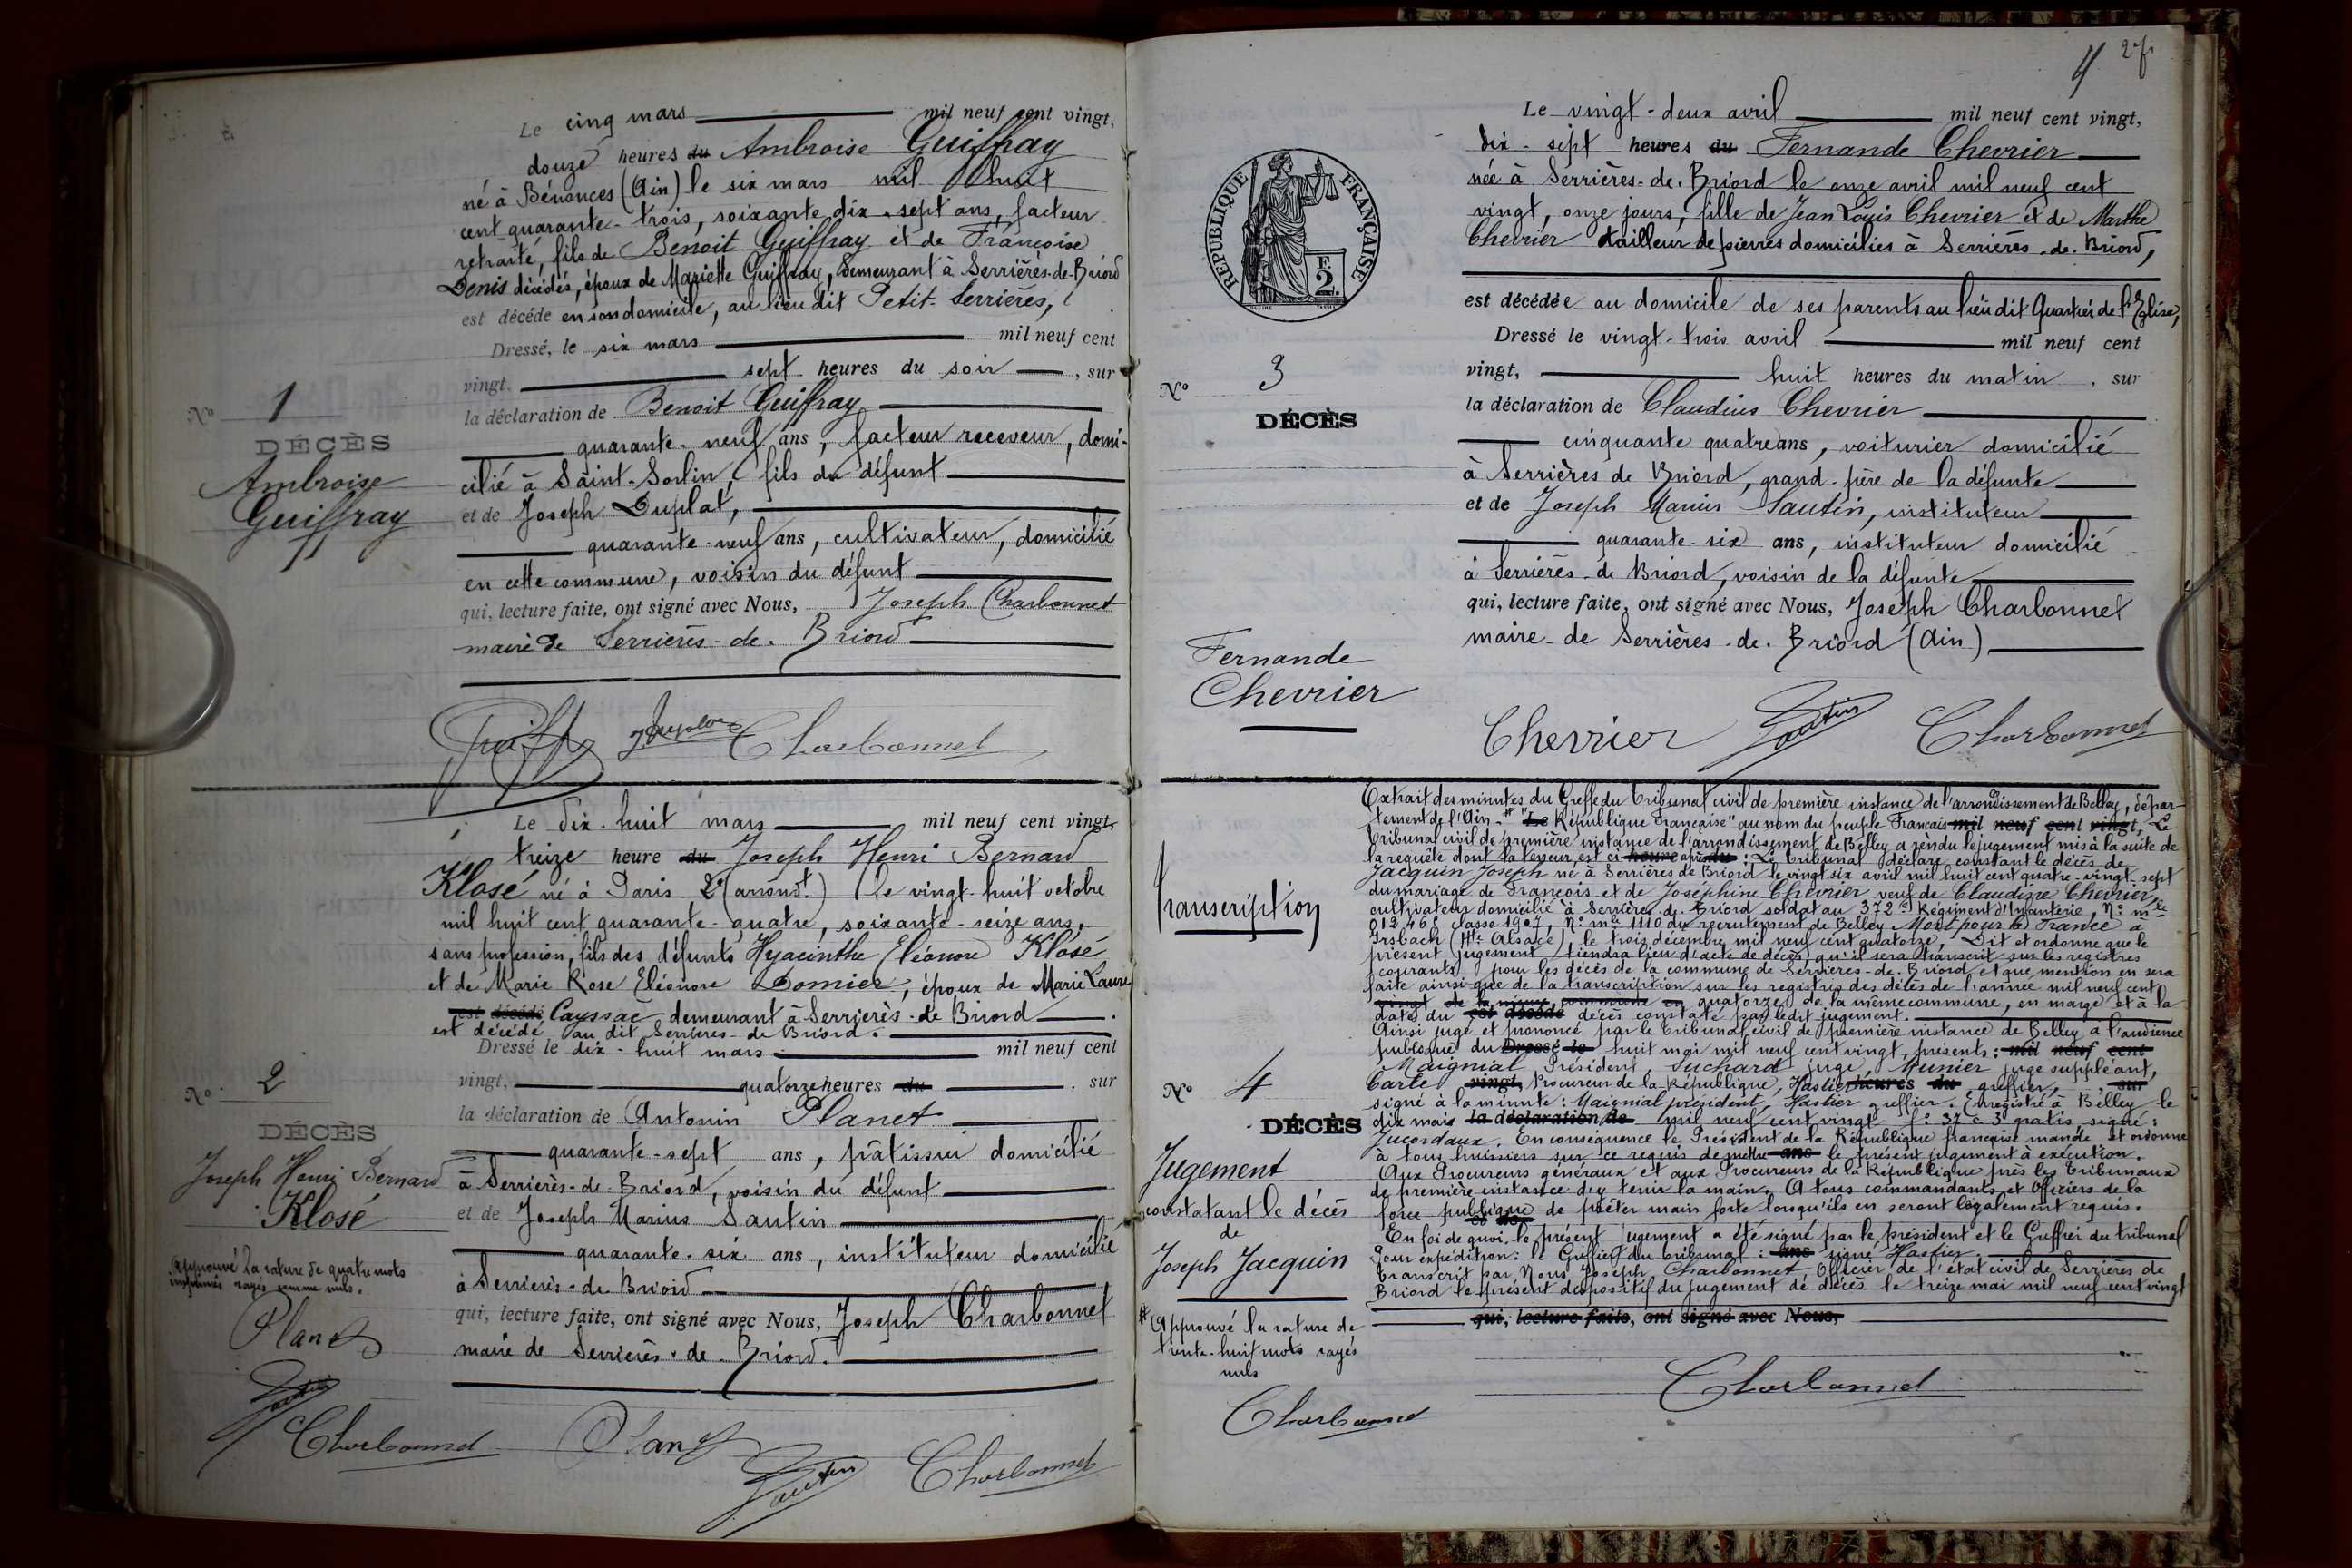 Le cinq mars mil neuf cent vingt,
douze heures du Ambroise Guiffray
né à Bénonces (Ain) le six mars mil huit
cent quarante-trois, soixante dix-sept ans, facteur
retraité, fils de Benoit Guiffray et de Françoise
Denis décédés, époux de Mariette Guiffray, demeurant à Serrières-de-Briord
est décédé en son domicile, au lieu dit Petit-Serrières,
Dressé, le six mars mil neuf cent
vingt, sept heures du soir, sur
la déclaration de Benoit Guiffray
quarante-neuf ans, facteur receveur, domi-
cilié à Saint-Sorlin, fils du défunt
et de Joseph Duplat,
quarante-neuf ans, cultivateur, domicilié
en cette commune, voisin du défunt
qui, lecture faite, ont signé avec Nous, Joseph Charbonnet
maire de Serrières-de-Briord
N° 1
DÉCÈS
Ambroise
Guiffray
Charbonnet
Le dix-huit mars mil neuf cent vingt,
treize heure du Joseph Henri Bernard
Klosé né à Paris 2e (arrondt.) le vingt-huit octobre
mil huit cent quarante-quatre, soixante-seize ans,
sans profession, fils des défunts Hyacinthe Eléonore Klosé
et de Marie Rose Eléonore Domier, époux de Marie Laure
est décédé Cayssac demeurant à Serrières-de Briord
est décédé au dit Serrières-de Briord.
Dressé le dix-huit mars mil neuf cent
vingt, quatorze heures du sur
la déclaration de Antonin Planet
quarante-sept ans, pâtissier domicilié
à Serrières-de-Briord, voisin du défunt
et de Joseph Marius Sautin
quarante-six ans, instituteur domicilié
à Serrières-de Briord
qui, lecture faite, ont signé avec Nous, Joseph Charbonnet
maire de Serrières-de-Briord.
N° 2
DÉCÈS
Joseph Henri Bernard
Klosé
Approuvé la rature de quatre mots
imprimés rayés comme nuls.
Planet
Sautin
Charbonnet
Planet
Sautin
Charbonnet
4
RÉPUBLIQUE FRANÇAISE
2F.
Le vingt-deux avril mil neuf cent vingt,
dix-sept heures du Fernande Chevrier
née à Serrières-de-Briord le onze avril mil neuf cent
vingt, onze jours, fille de Jean Louis Chevrier et de Marthe
Chevrier tailleur de pierres domiciliés à Serrières-de-Briord,
est décédée au domicile de ses parents au lieu dit Quartier de l'Eglise,
Dressé le vingt-trois avril mil neuf cent
vingt, huit heures du matin, sur
la déclaration de Claudius Chevrier
cinquante quatre ans, voiturier domicilié
à Serrières de Briord, grand-père de la défunte
et de Joseph Marius Sautin, instituteur
quarante-six ans, instituteur domicilié
à Serrières-de Briord, voisin de la défunte
qui, lecture faite, ont signé avec Nous, Joseph Charbonnet
maire de Serrières-de-Briord (Ain)
N° 3
DÉCÈS
Fernande
Chevrier
Chevrier Sautin Charbonnet
Extrait des minutes du Greffe du Tribunal civil de première instance de l'arrondissement de Belley, dépar-
tement de l'Ain. # "Le République Française" au nom du peuple Français mil neuf cent vingt, Le
Tribunal civil de première instance de l'arrondissement de Belley a rendu le jugement mis à la suite de
la requête dont la teneur est ci heures après du : Le tribunal déclare constant le décès de
Jacquin Joseph né à Serrières de Briord le vingt six avril mil huit cent quatre-vingt-sept
du mariage de François et de Joséphine Chevrier veuf de Claudine Chevrier,
cultivateur domicilié à Serrières-de-Briord soldat au 372e Régiment d'Infanterie, N° mle
01246, classe 1907, N° mle 1110 du recrutement de Belley Mort pour la France à
Irsbach (Hte Alsace), le trois décembre mil neuf cent quatorze, Dit et ordonne que le
présent jugement tiendra lieu d'acte de décès, qu'il sera transcrit sur les registres
courants pour les décès de la commune de Serrières-de-Briord et que mention en sera
faite ainsi que de la transcription sur les registres des décès de l'année mil neuf cent
vingt de la même commune en quatorze de la même commune, en marge et à la
date du est décédé décès constaté par ledit jugement.
Ainsi jugé et prononcé par le Tribunal civil de première instance de Belley à l'audience
publique du Dressé le huit mai mil neuf cent vingt, présents : mil neuf cent
Maignial Président, Suchard juge, Meunier juge suppléant,
Carle vingt, Procureur de la République, Hastier heures du greffier, sur
signé à la minute : Maignial président, Hastier greffier. Enregistré à Belley le
dix mai la déclaration de mil neuf cent vingt f° 37 c 3 gratis, signé :
Jucordaux. En conséquence le Président de la République française mande et ordonne
à tous huissiers sur ce requis de mettre ans le présent jugement à exécution.
Aux Procureurs généraux et aux Procureurs de la République près les Tribunaux
de première instance d'y tenir la main. A tous commandants et Officiers de la
force publique et de de prêter main forte lorsqu'ils en seront légalement requis.
En foi de quoi le présent jugement a été signé par le président et le Greffier du tribunal
Pour expédition : le Greffier du tribunal : ans signé Hastier.
Transcrit par Nous Joseph Charbonnet Officier de l'état civil de Serrières de
Briord le présent dispositif du jugement de décès le treize mai mil neuf cent vingt
qui, lecture faite, ont signé avec Nous,
Charbonnet
Transcription
N° 4
DÉCÈS
Jugement
constatant le décès
de
Joseph Jacquin
# Approuvé la rature de
trente-huit mots rayés
nuls
Charbonnet